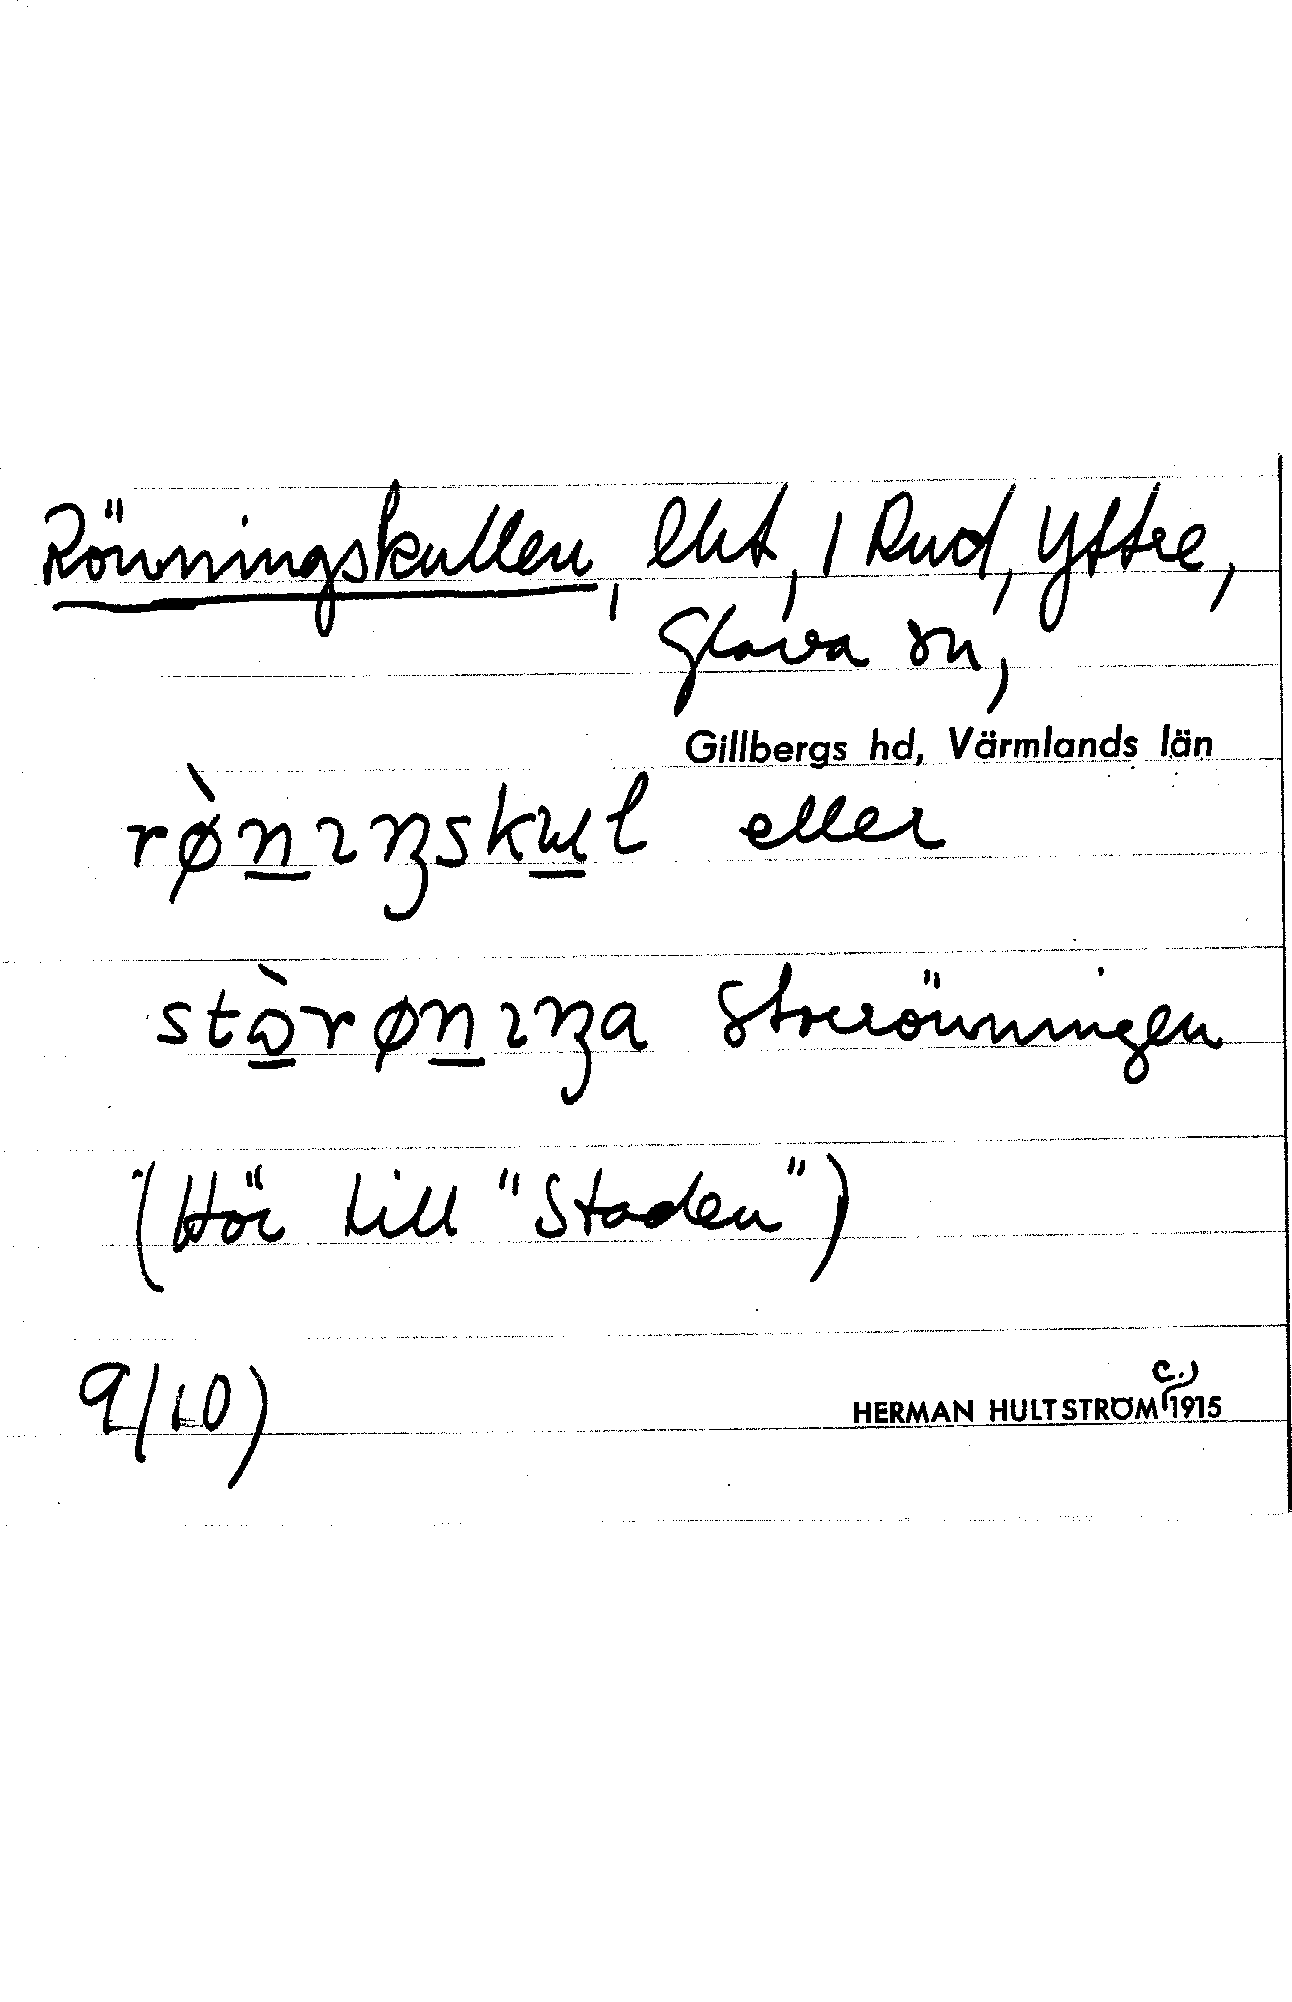 Rönningskullen, lht, i Rud, Yttre,
Glava sn,
Gillbergs hd, Värmlands län
rø̀n̲ıŋskɯ̲l eller
stɷ̲̀røn̲ıŋa Storrönningen
(Hör till "Staden")
9/10)
HERMAN HULTSTRÖM c.) 1915